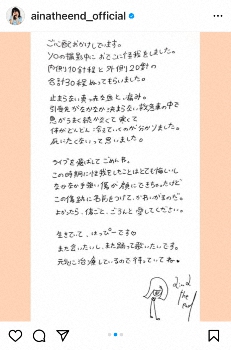 ainatheend_official
ご心配おかけしています。
ソロの撮影中におでこに怪我をしました。
内側10針程と外側20針の
合計30程ぬってもらいました。
止まらない真っ赤な血と、痛み。
引受先がなかなか決まらない救急車の中で
息がうまく続かなくて寒くて
体がどんどん冷えていくのが分かりました。
死にたくないって思いました。
ライブを飛ばしてごめんね。
この時期に怪我をしたことはとても悔しいし
なかなか手強い傷が顔にできちゃったけど
この傷跡に名前をつけて、かわいがるのだ。
よかったら、傷ごと、ごろんと愛してください。
生きていて、はっぴーです♡
また会いたいし、また踊って歌いたいです。
元気に治療しているので待っていてね
aina
the
end